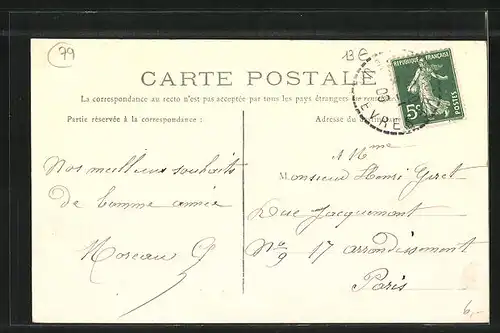 79
13 €
CARTE POSTALE
RÉPUBLIQUE FRANÇAISE
5c
POSTES
09
EVRES
La correspondance au recto n'est pas acceptée par tous les pays étrangers
Partie réservée à la correspondance :
Adresse du
Nos meilleurs souhaits
de bonne année
Moreau G
A Mme
Monsieur Henri Giret
Rue Jacquemont
No 9 17 arrondissement
Paris
6,-